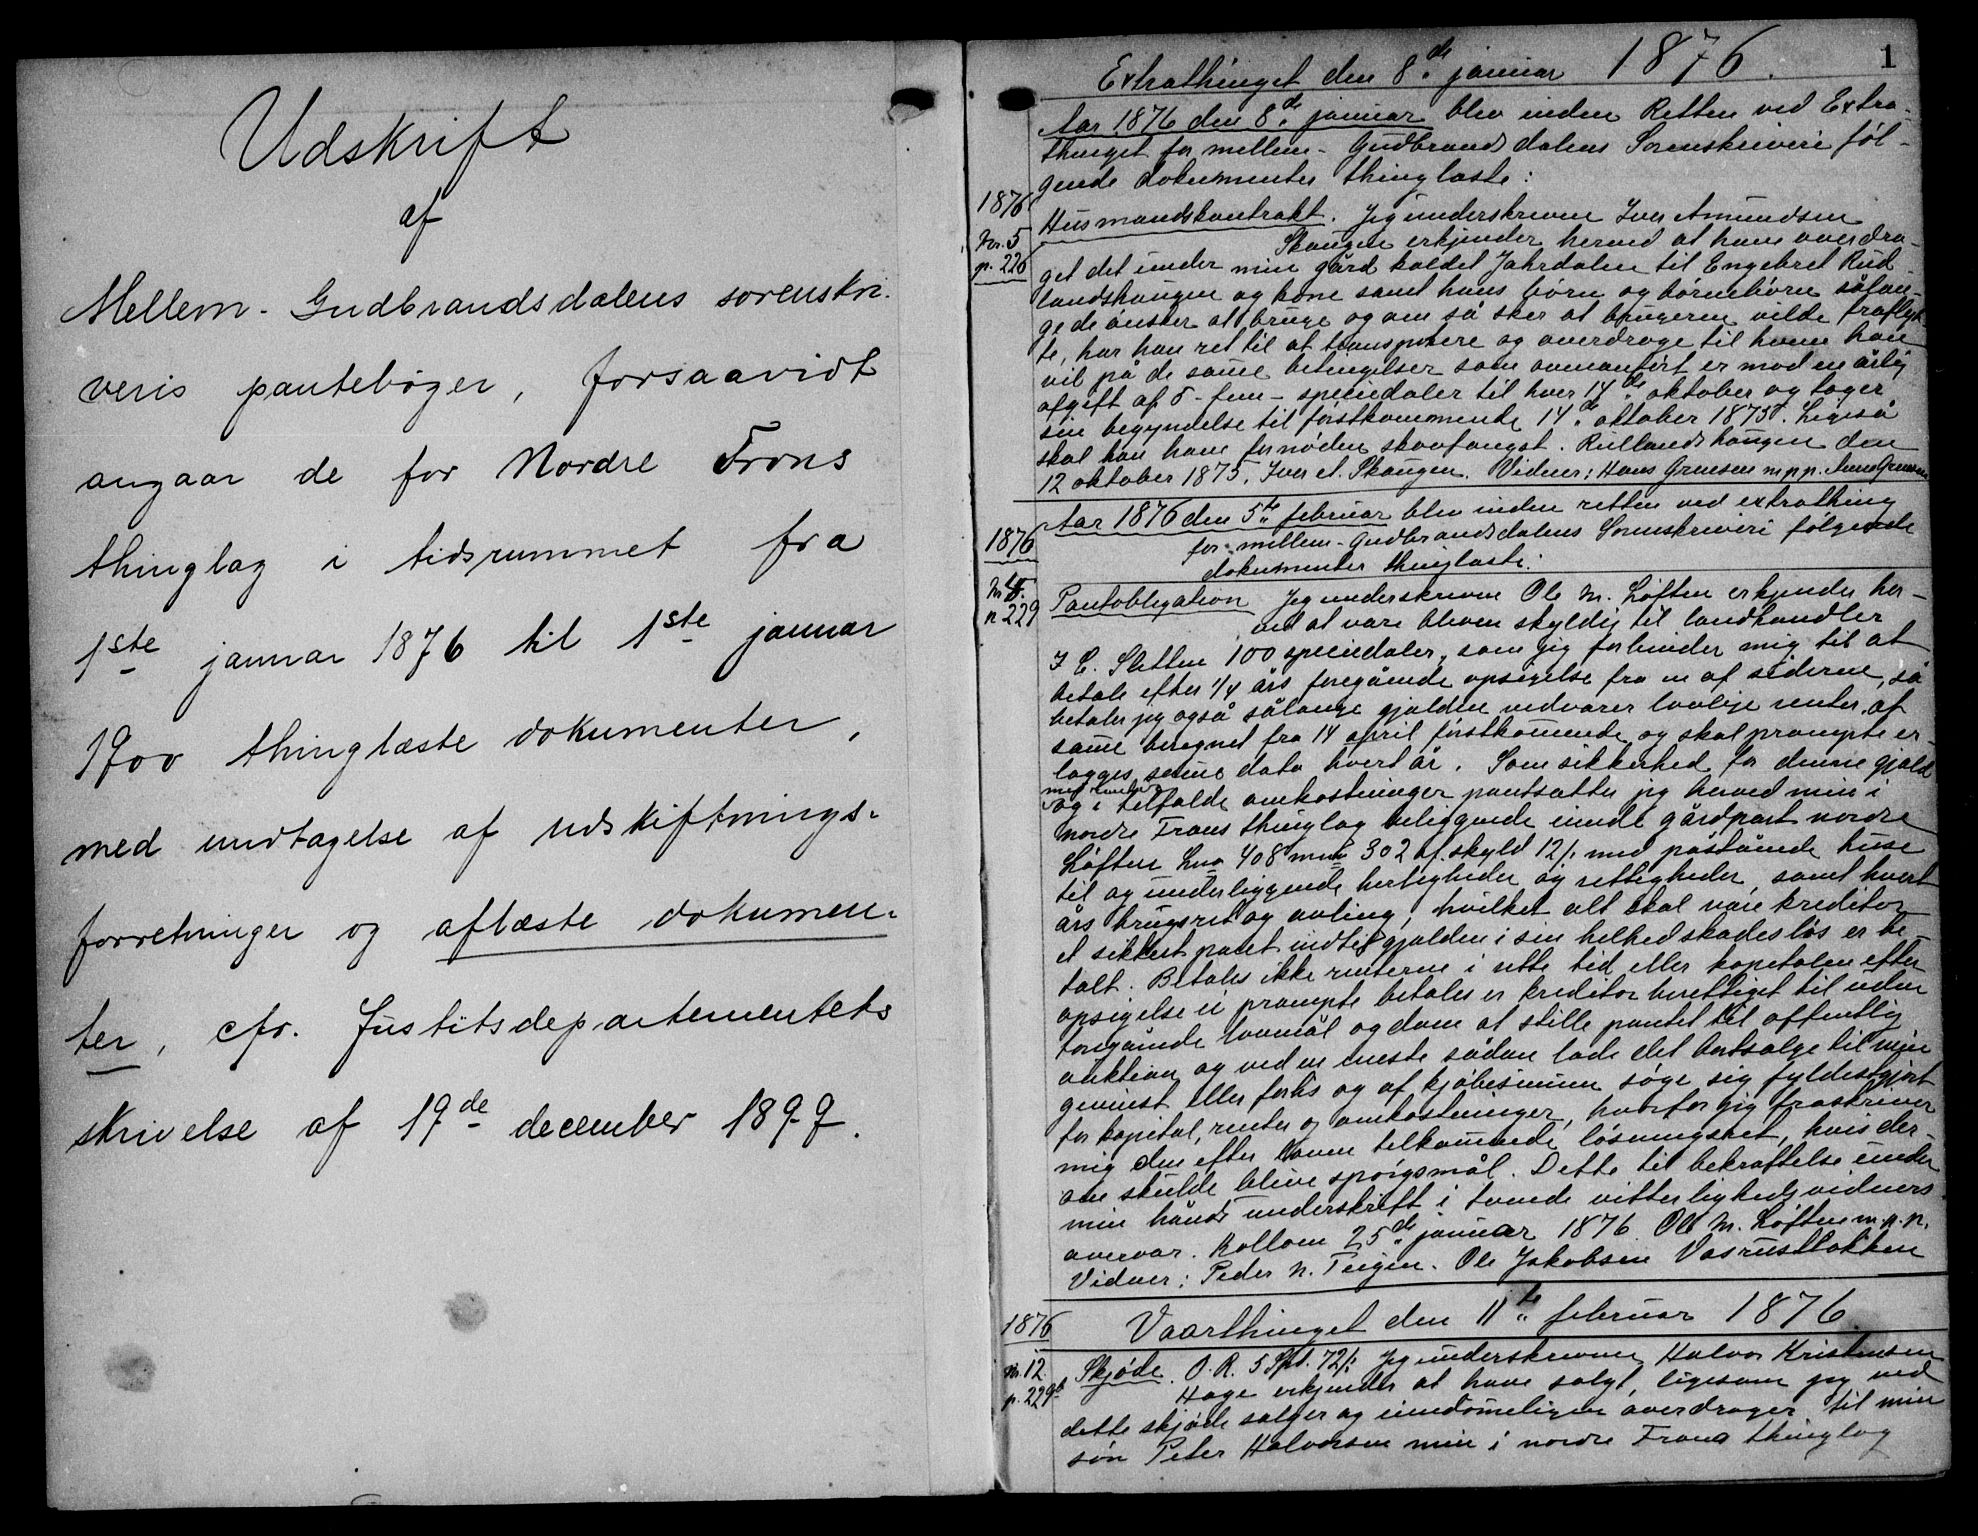 Udskrift
af
Mellem-Gudbrandsdalens sorenskri-
veris pantebøger, forsaavidt
angaar de for Nordre Frons
thinglag i tidsrummet fra
1ste januar 1876 til 1ste januar
1900 thinglæste dokumenter,
med undtagelse af udskiftnings-
forretninger og aflæste dokumen-
ter, cfr. Justitsdepartementets
skrivelse af 19de december 1899.
1
Extrathinget den 8de januar 1876.
Aar 1876 den 8de januar blev inden Retten ved Extra-
thinget for mellem-Gudbrandsdalens Sorenskriveri føl-
gende dokumenter thinglæste:
1876
No. 5
p. 226
Husmandskontrakt. Jeg underskrevne Iver Amundsen
Skaugen erkjender herved at have overdra-
get det under min gård kaldet Jahrdalen til Engebret Rud-
landshaugen og kone samt hans børn og børnebørn sålæn-
ge de ønsker at bruge og om så sker at brugerne vilde fraflyt-
te, har han ret til at transportere og overdrage til hvem han
vil på de samme betingelser som ovenanført er mod en årlig
afgift af 5-fem-speciedaler til hver 14de oktober og tager
sin begyndelse til førstkommende 14de oktober 1875. Ligeså
skal han have fornøden skovfangst. Rullandshaugen den
12 oktober 1875. Iver A. Skaugen. Vidner: Hans Gruesen m.p.p.
Aar 1876 den 5te februar blev inden retten ved extrathing
for mellem-Gudbrandsdalens Sorenskriveri følgende
dokumenter thinglæste:
1876
No 4.
p 229
Pantobligation Jeg underskrevne Ole M. Løften erkjender her-
ved at være bleven skyldig til landhandler
I E. Sletten 100 speciedaler, som jeg forbinder mig til at
betale efter 1/4 års foregående opsigelse fra en af siderne, så
betaler jeg også sålænge gjælden vedvarer lovlige renter af
samme beregnet fra 14 april førstkommende og skal prompte er-
lægges samme dato hvert år. Som sikkerhed for denne gjæld
med renter
og i tilfælde omkostninger pantsætter jeg herved min i
nordre Frons thinglag beliggende eiende gårdpart nordre
Løften Lno 408 mno 302 af skyld 12/: med påstående huse
til og underliggende herligheder og rettigheder, samt hvert
års brugsret og avling, hvilket alt skal være kreditor
et sikkert pant indtil gjælden i sin helhed skadesløs er be-
talt. Betales ikke renterne i rette tid eller kapitalen efter
opsigelse ei prompte betales er kreditor berettiget til uden
foregående lovmål og dom at stille pantet til offentlig
auktion og ved en eneste sådan lade det bortsælge til min
gevinst eller forlis og af kjøbesummen søge sig fyldestgjort
for kapital, renter og omkostninger, hvorfor jeg fraskriver
mig den efter loven tilkommende løsningsret, hvis der-
om skulde blive spørgsmål. Dette til bekræftelse under
min hånds underskrift i tvende vitterlighedsvidners
overvær. Kollom 25de januar 1876 Ole M. Løften m.p.p.
Vidner: Peder N. Teigen. Ole Jakobsen Vasrustløkken
Vaarthinget den 11te februar 1876.
1876
No. 12
p. 229b
Skjøde. O. R. 5 Spd. 72/: Jeg underskrevne Halvor Kristensen
Hage erkjender at have solgt, ligesom jeg ved
dette skjøde sælger og eiendommeligen overdrager til min
søn Peter Halvorsen min i nordre Frons thinglag